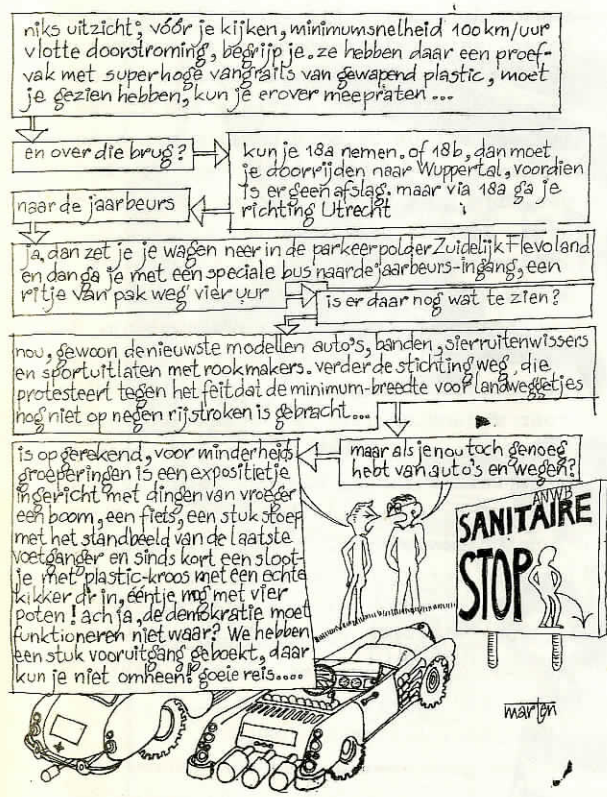 niks uitzicht; vóór je kijken, minimumsnelheid 100 km/uur
vlotte doorstroming, begrijp je. ze hebben daar een proef-
vak met superhoge vangrails van gewapend plastic, moet
je gezien hebben, kun je erover meepraten ...
en over die brug?
kun je 18a nemen. of 18b, dan moet
je doorrijden naar Wuppertal, voordien
is er geen afslag. maar via 18a ga je
richting Utrecht
naar de jaarbeurs
ja, dan zet je je wagen neer in de parkeerpolder Zuidelijk Flevoland
en dan ga je met een speciale bus naar de jaarbeurs-ingang, een
ritje van pak weg vier uur
is er daar nog wat te zien?
nou, gewoon de nieuwste modellen auto's, banden, sierruitenwissers
en sportuitlaten met rookmakers. verder de stichting weg, die
protesteert tegen het feit dat de minimum-breedte voor landweggetjes
nog niet op negen rijstroken is gebracht...
maar als je nou toch genoeg
hebt van auto's en wegen?
is op gerekend, voor minderheids
groeperingen is een expositietje
ingericht met dingen van vroeger
een boom, een fiets, een stuk stoep
met het standbeeld van de laatste
voetganger en sinds kort een sloot-
je met plastic-kroos met een echte
kikker dr in, eentje nog met vier
poten! ach ja, de demokratie moet
funktioneren niet waar? We hebben
een stuk vooruitgang geboekt, daar
kun je niet omheen! goeie reis....
ANWB
SANITAIRE
STOP
marten